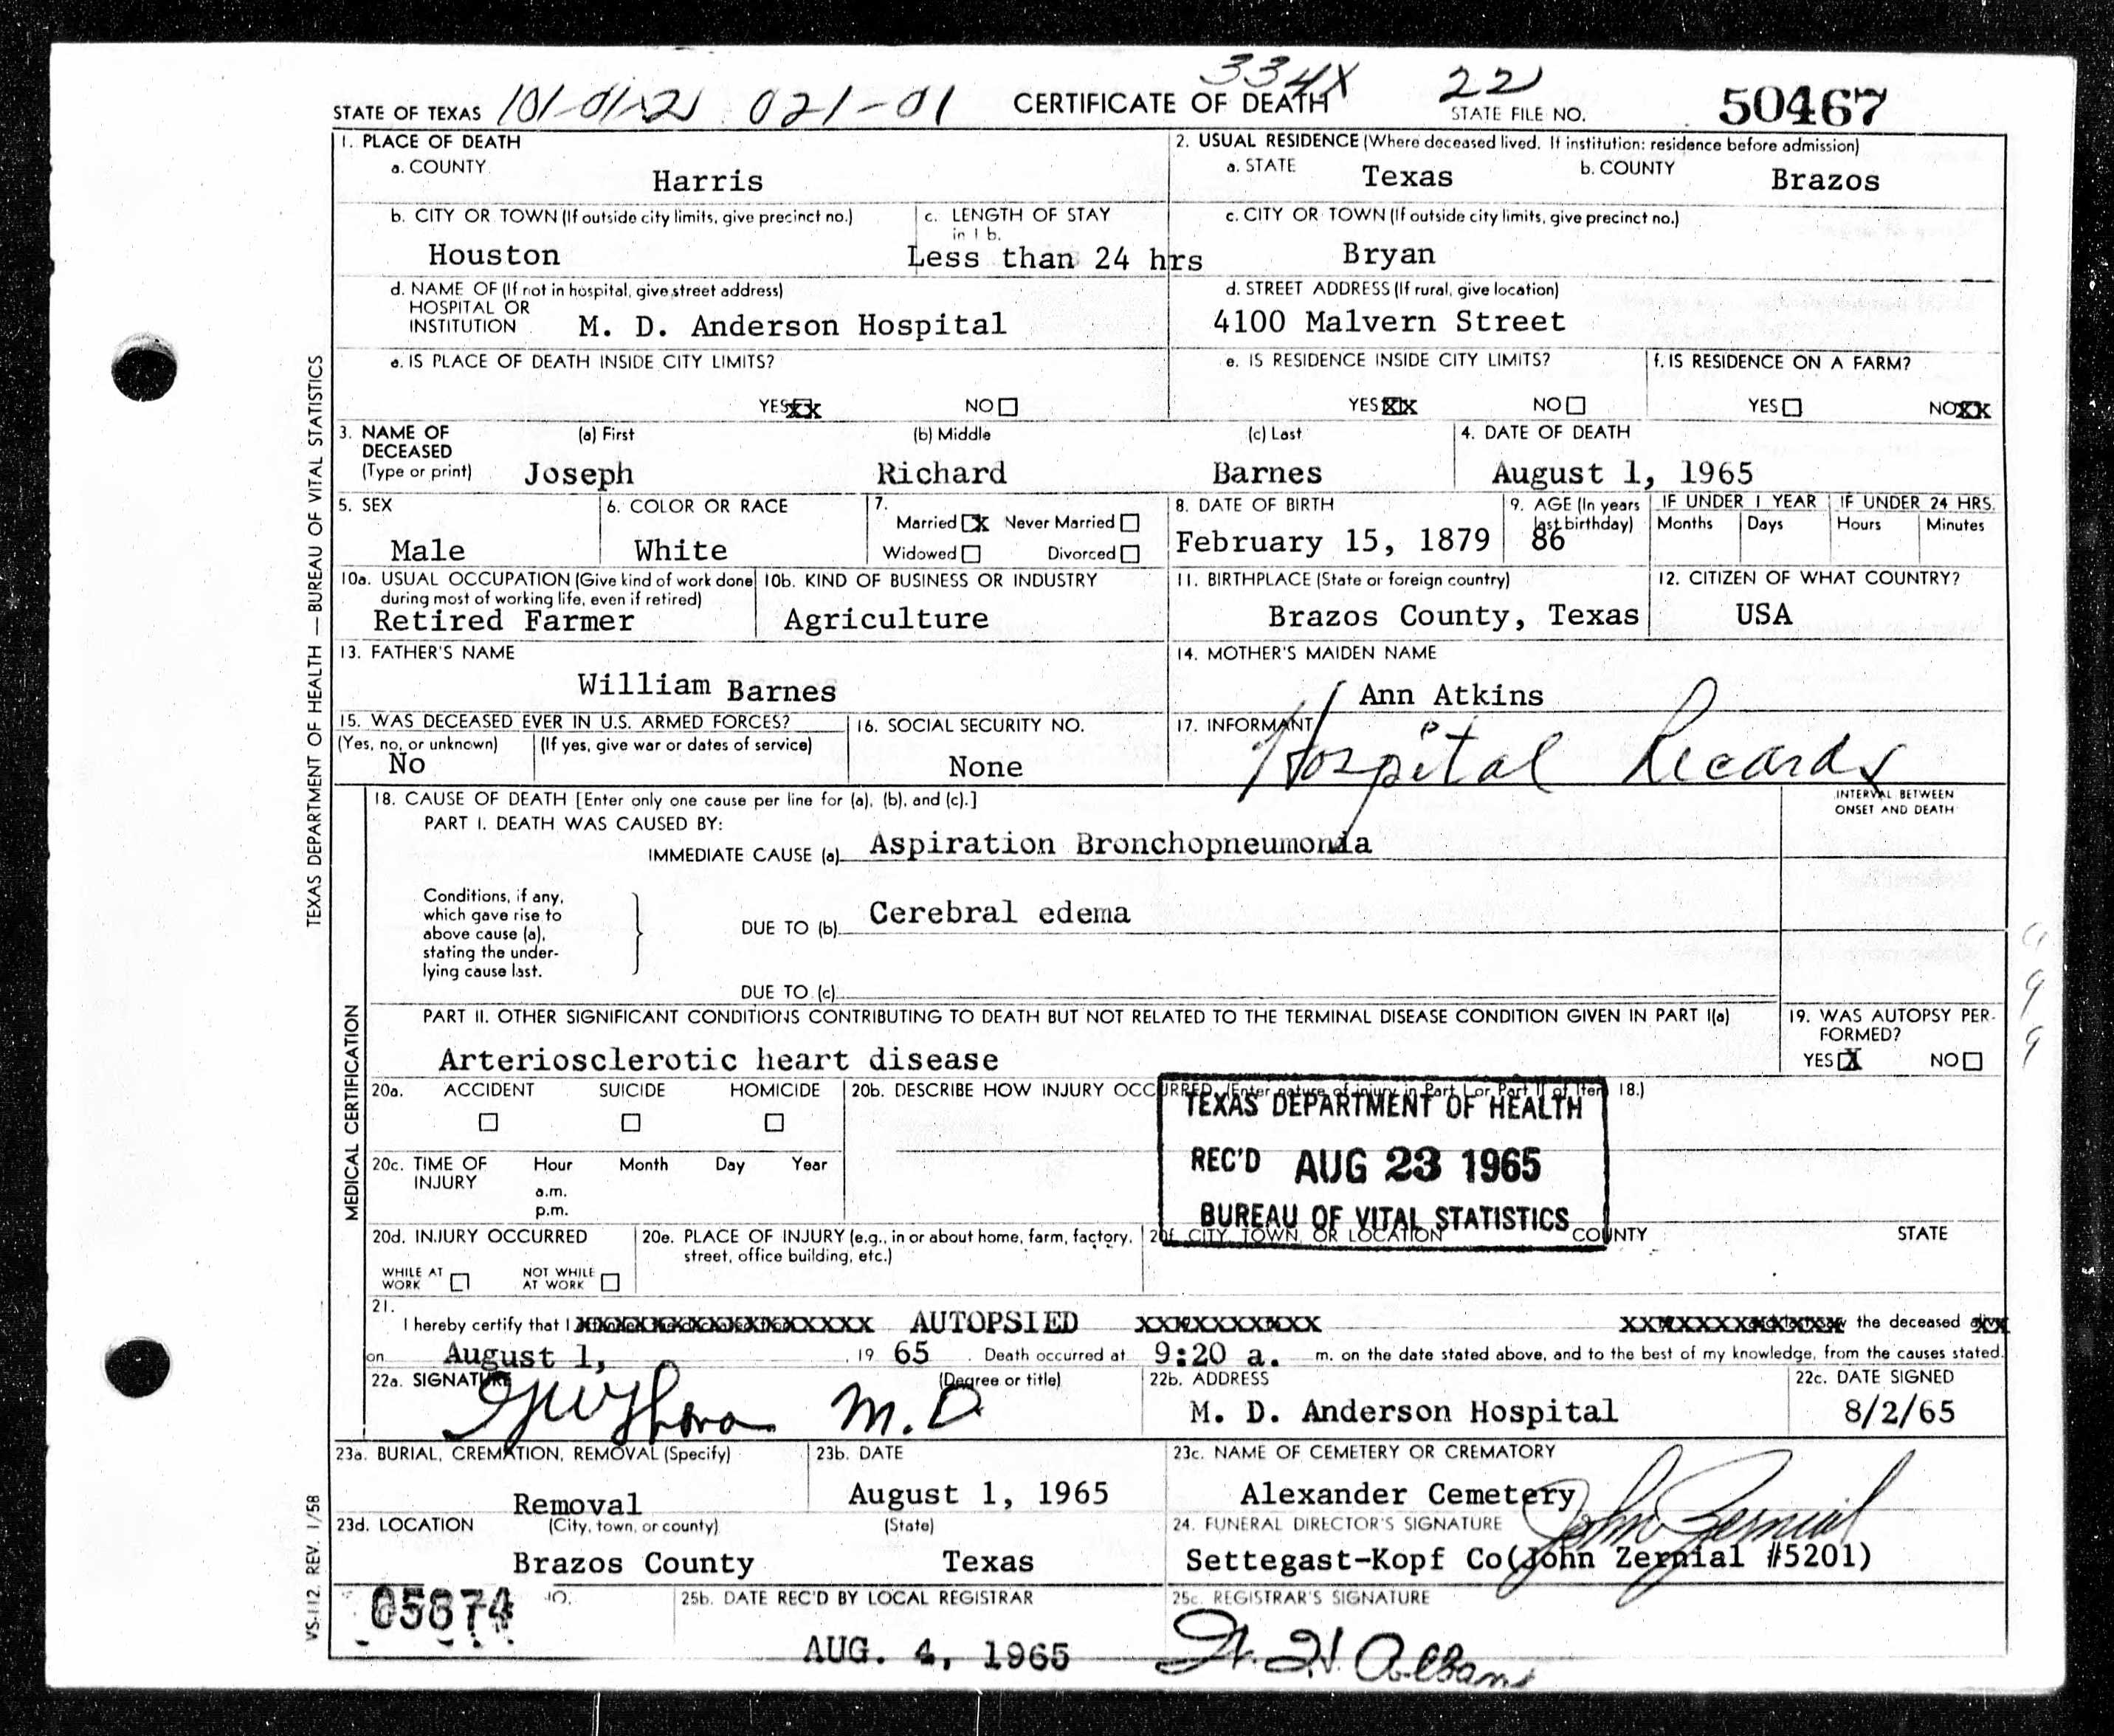 334X 22
STATE OF TEXAS 101-01-21 021-01 CERTIFICATE OF DEATH STATE FILE NO. 50467
1. PLACE OF DEATH
a. COUNTY
Harris
2. USUAL RESIDENCE (Where deceased lived. If institution: residence before admission)
a. STATE Texas b. COUNTY Brazos
b. CITY OR TOWN (If outside city limits, give precinct no.)
Houston
c. LENGTH OF STAY
in 1 b.
Less than 24 hrs
c. CITY OR TOWN (If outside city limits, give precinct no.)
Bryan
d. NAME OF (If not in hospital, give street address)
HOSPITAL OR
INSTITUTION M. D. Anderson Hospital
d. STREET ADDRESS (If rural, give location)
4100 Malvern Street
e. IS PLACE OF DEATH INSIDE CITY LIMITS?
YES XX NO
e. IS RESIDENCE INSIDE CITY LIMITS?
YES XX NO
f. IS RESIDENCE ON A FARM?
YES NO XX
3. NAME OF
DECEASED
(Type or print)
(a) First (b) Middle (c) Last
Joseph Richard Barnes
4. DATE OF DEATH
August 1, 1965
5. SEX
Male
6. COLOR OR RACE
White
7.
Married X Never Married
Widowed Divorced
8. DATE OF BIRTH
February 15, 1879
9. AGE (In years
last birthday)
86
IF UNDER 1 YEAR IF UNDER 24 HRS.
Months Days Hours Minutes
10a. USUAL OCCUPATION (Give kind of work done
during most of working life, even if retired)
Retired Farmer
10b. KIND OF BUSINESS OR INDUSTRY
Agriculture
11. BIRTHPLACE (State or foreign country)
Brazos County, Texas
12. CITIZEN OF WHAT COUNTRY?
USA
13. FATHER'S NAME
William Barnes
14. MOTHER'S MAIDEN NAME
Ann Atkins
15. WAS DECEASED EVER IN U.S. ARMED FORCES?
(Yes, no, or unknown) (If yes, give war or dates of service)
No
16. SOCIAL SECURITY NO.
None
17. INFORMANT
Hospital Records
18. CAUSE OF DEATH [Enter only one cause per line for (a), (b), and (c).]
INTERVAL BETWEEN
ONSET AND DEATH
PART I. DEATH WAS CAUSED BY:
IMMEDIATE CAUSE (a) Aspiration Bronchopneumonia
Conditions, if any,
which gave rise to
above cause (a),
stating the under-
lying cause last.
DUE TO (b) Cerebral edema
DUE TO (c)
PART II. OTHER SIGNIFICANT CONDITIONS CONTRIBUTING TO DEATH BUT NOT RELATED TO THE TERMINAL DISEASE CONDITION GIVEN IN PART I(a)
Arteriosclerotic heart disease
19. WAS AUTOPSY PER-
FORMED?
YES X NO
20a. ACCIDENT SUICIDE HOMICIDE
20b. DESCRIBE HOW INJURY OCCURRED. (Enter nature of injury in Part I or Part II of item 18.)
TEXAS DEPARTMENT OF HEALTH
REC'D AUG 23 1965
BUREAU OF VITAL STATISTICS
20c. TIME OF
INJURY
Hour Month Day Year
a.m.
p.m.
20d. INJURY OCCURRED
WHILE AT
WORK
NOT WHILE
AT WORK
20e. PLACE OF INJURY (e.g., in or about home, farm, factory,
street, office building, etc.)
20f. CITY, TOWN, OR LOCATION COUNTY STATE
21.
I hereby certify that I AUTOPSIED the deceased
on August 1, 19 65. Death occurred at 9:20 a. m. on the date stated above, and to the best of my knowledge, from the causes stated.
22a. SIGNATURE (Degree or title)
M.D.
22b. ADDRESS
M. D. Anderson Hospital
22c. DATE SIGNED
8/2/65
23a. BURIAL, CREMATION, REMOVAL (Specify)
Removal
23b. DATE
August 1, 1965
23c. NAME OF CEMETERY OR CREMATORY
Alexander Cemetery
23d. LOCATION (City, town, or county) (State)
Brazos County Texas
24. FUNERAL DIRECTOR'S SIGNATURE
John Zernial
Settegast-Kopf Co(John Zernial #5201)
05674
25b. DATE REC'D BY LOCAL REGISTRAR
AUG. 4, 1965
25c. REGISTRAR'S SIGNATURE
TEXAS DEPARTMENT OF HEALTH — BUREAU OF VITAL STATISTICS
MEDICAL CERTIFICATION
VS-112. REV. 1/58